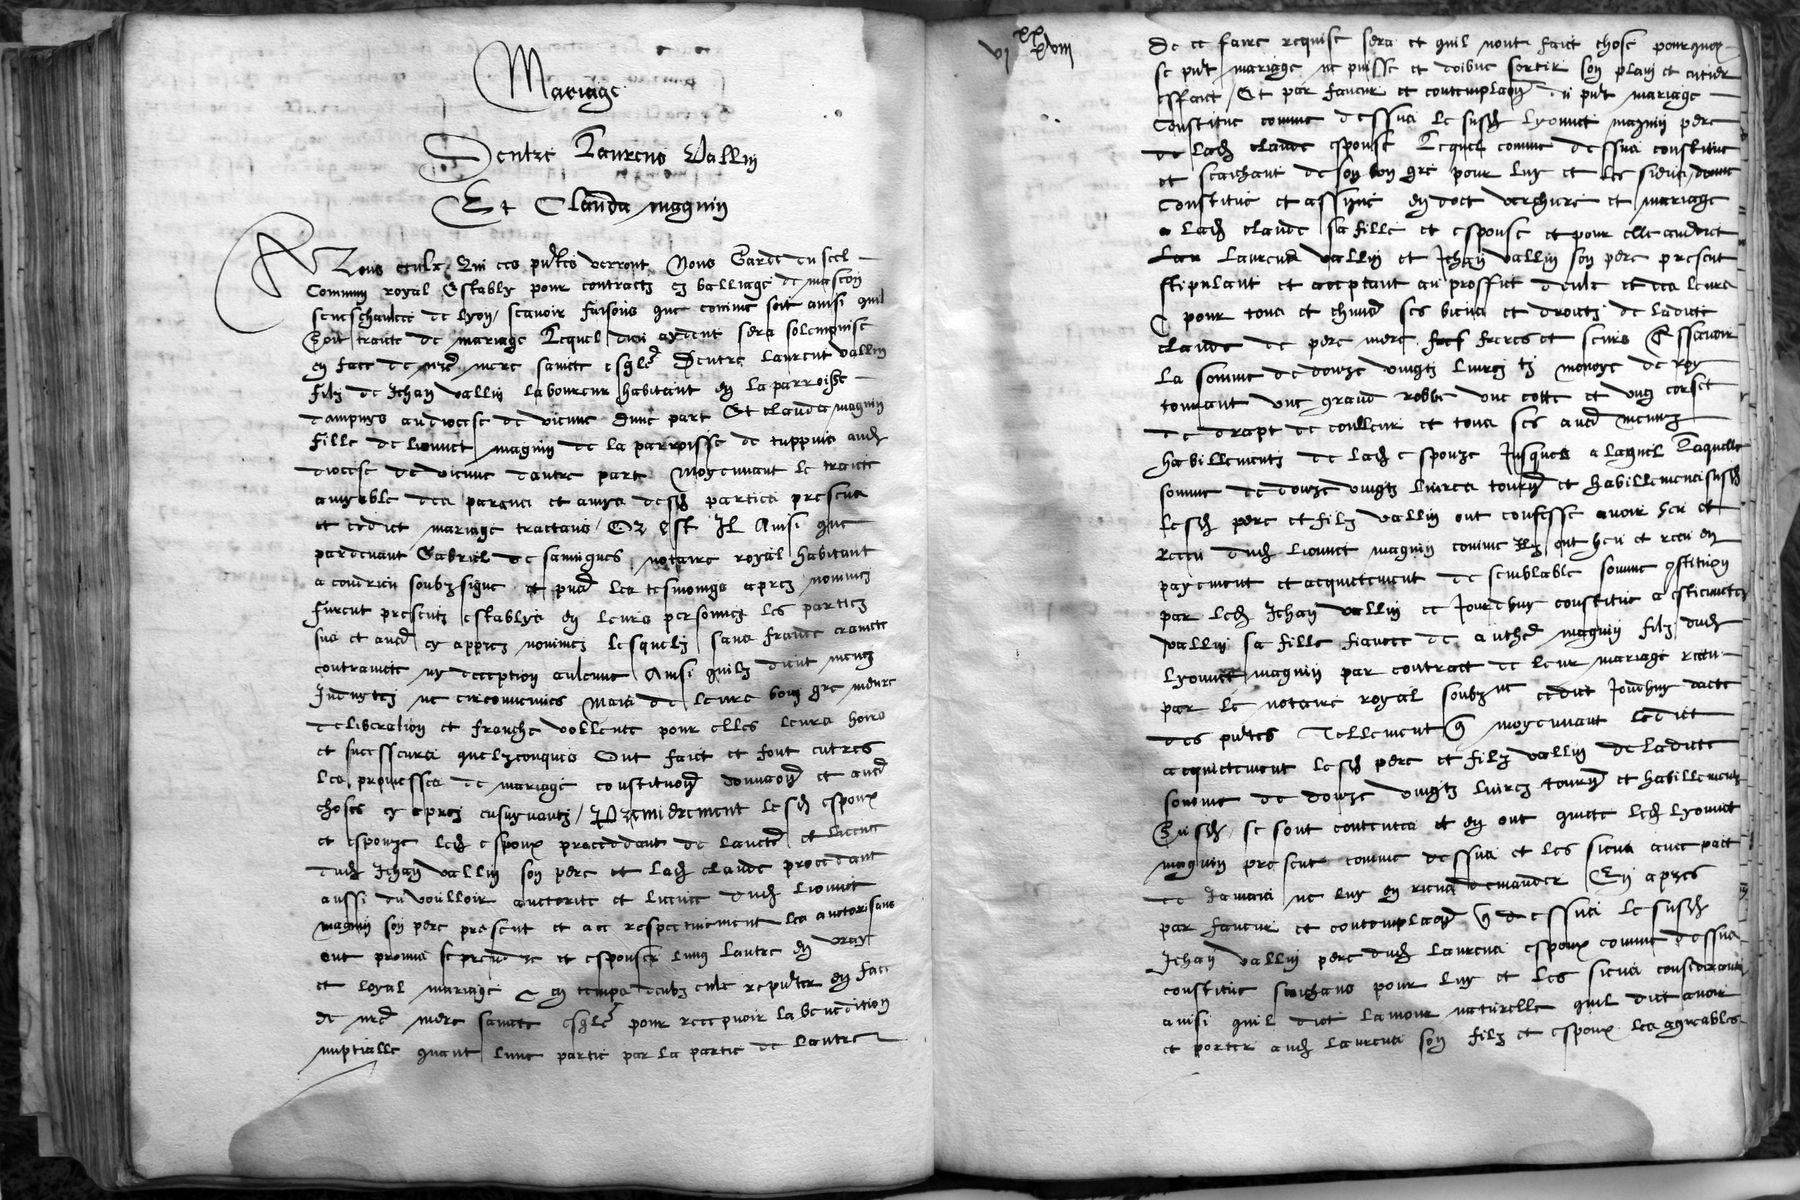 Mariage
Dentre Laurens Vallin
Et Clauda magnin
A Tous ceulx Qui ces pntes verront Nous Garde du scel
Commun royal Estably pour contractz es balliage de mascon
seneschaulcee de lyon / scavoir faisons que comme soit ainsi quil
Soit traicte de mariage Lequel dieu aydent sera solempnise
en face de nre mere saincte esglse Dentre laurent vallin
filz de Jehan vallin laboureur habitant en la parroisse
dampuys au diocese de vienne dune part Et clauda magnin
fille de lionnet magnin de la parroisse de tuppins audt
diocese de vienne dautre part Moyennant le traicte
amyable des parens et amys desdt parties presens
et cedict mariage tractans / Or est Il Ainsi que
pardevant Gabriel de notaire royal habitant
a condrieu soubzsigne et pnce les tesmoings aprez nommez
furent presentz establys en leurs personnes les partiez
sus et cy apprez nommez lesquelz sans fraude craincte
contraincte ny deception aulcune Ainsi quilz dient menez
Induytez ne circonvenues Mais de leurs bon gre meure
deliberation et franche vollente pour elles leurs hoirs
et successeurs quelzconques Ont faict et font entres
les promesses de mariage constitution donnaon et
choses cy aprez ensuyvantz / Premierement lesdt espoux
et espouze ledt espoux proceddant de laucte et licence
dudt Jehan vallin son pere et ladt claude procedant
aussi du voulloir auctorite et licence dudt lionnet
magnin son pere present et ace respectivement les auctorisans
ont promis se prendre et espouser lung lautre en vray
et loyal mariage en temps deubz en face
de nre mere saincte esglse pour recepvoir la benedition
nuptialle quant lune partie par la partie de lautre
vi xx xviii
de ce faire requise sera et quil nont faict chose pourquoy
se pnt mariage ne puisse et doibve sortir son plain et entier
effaict / Et par faveur et contemplaon du pnt mariage
Constitue comme dessus le susdt lyonnet magnin pere
de ladt claude espouse Lequel comme dessus constitue
et scaichant de son bon gre pour luy et les siens donne
constitue et assigne en doct verchiere et mariage
a ladt claude sa fille et espouse et pour elle audict
laurens vallin et Jehan vallin son pere present
stipulant et acceptant au proffit deulx et des leurs
pour tous et chuns ses biens et droictz de ladicte
claude de pere mere freres et seurs Assavoir
la somme de douze vingtz livrez tz monoye de roy
courant une grand robbe une cotte et ung corset
de drapt de coulleur et tous ses menuz
habillementz de ladt espouze Jusques a laquel Laquelle
somme de douze vingtz livres tournz et habillemens susdt
lesdt pere et filz vallin ont confesse avoir heu et
receu dudt lionnet magnin comme ont heu et receu en
payement et acquictement de semblable somme
par ledt Jehan vallin ce Jourdhuy constitue a estiennete
vallin sa fille fiancee de anthe magnin filz dudt
lyonnet magnin par contract de leur mariage receu
par le notaire royal soubzne cedict Jourdhuy dacte
des pntes Tellement q moyennant ledict
acquictement lesdt pere et filz vallin de ladicte
somme de douze vingtz livrez tournz et habillementz
Susdt / se sont contentes et en ont quicte ledt lyonnet
magnin present comme dessus et les siens avec pact
de Jamais ne luy en riens demander En apres
par faveur et contemplaon q dessus le susdt
Jehan vallin pere dudt laurens espoux comme dessus
constitue saichans pour luy et les siens considerant
ainsi quil dict lamour naturelle quil dict avoir
et porter audt laurens son filz et espoux les agreables